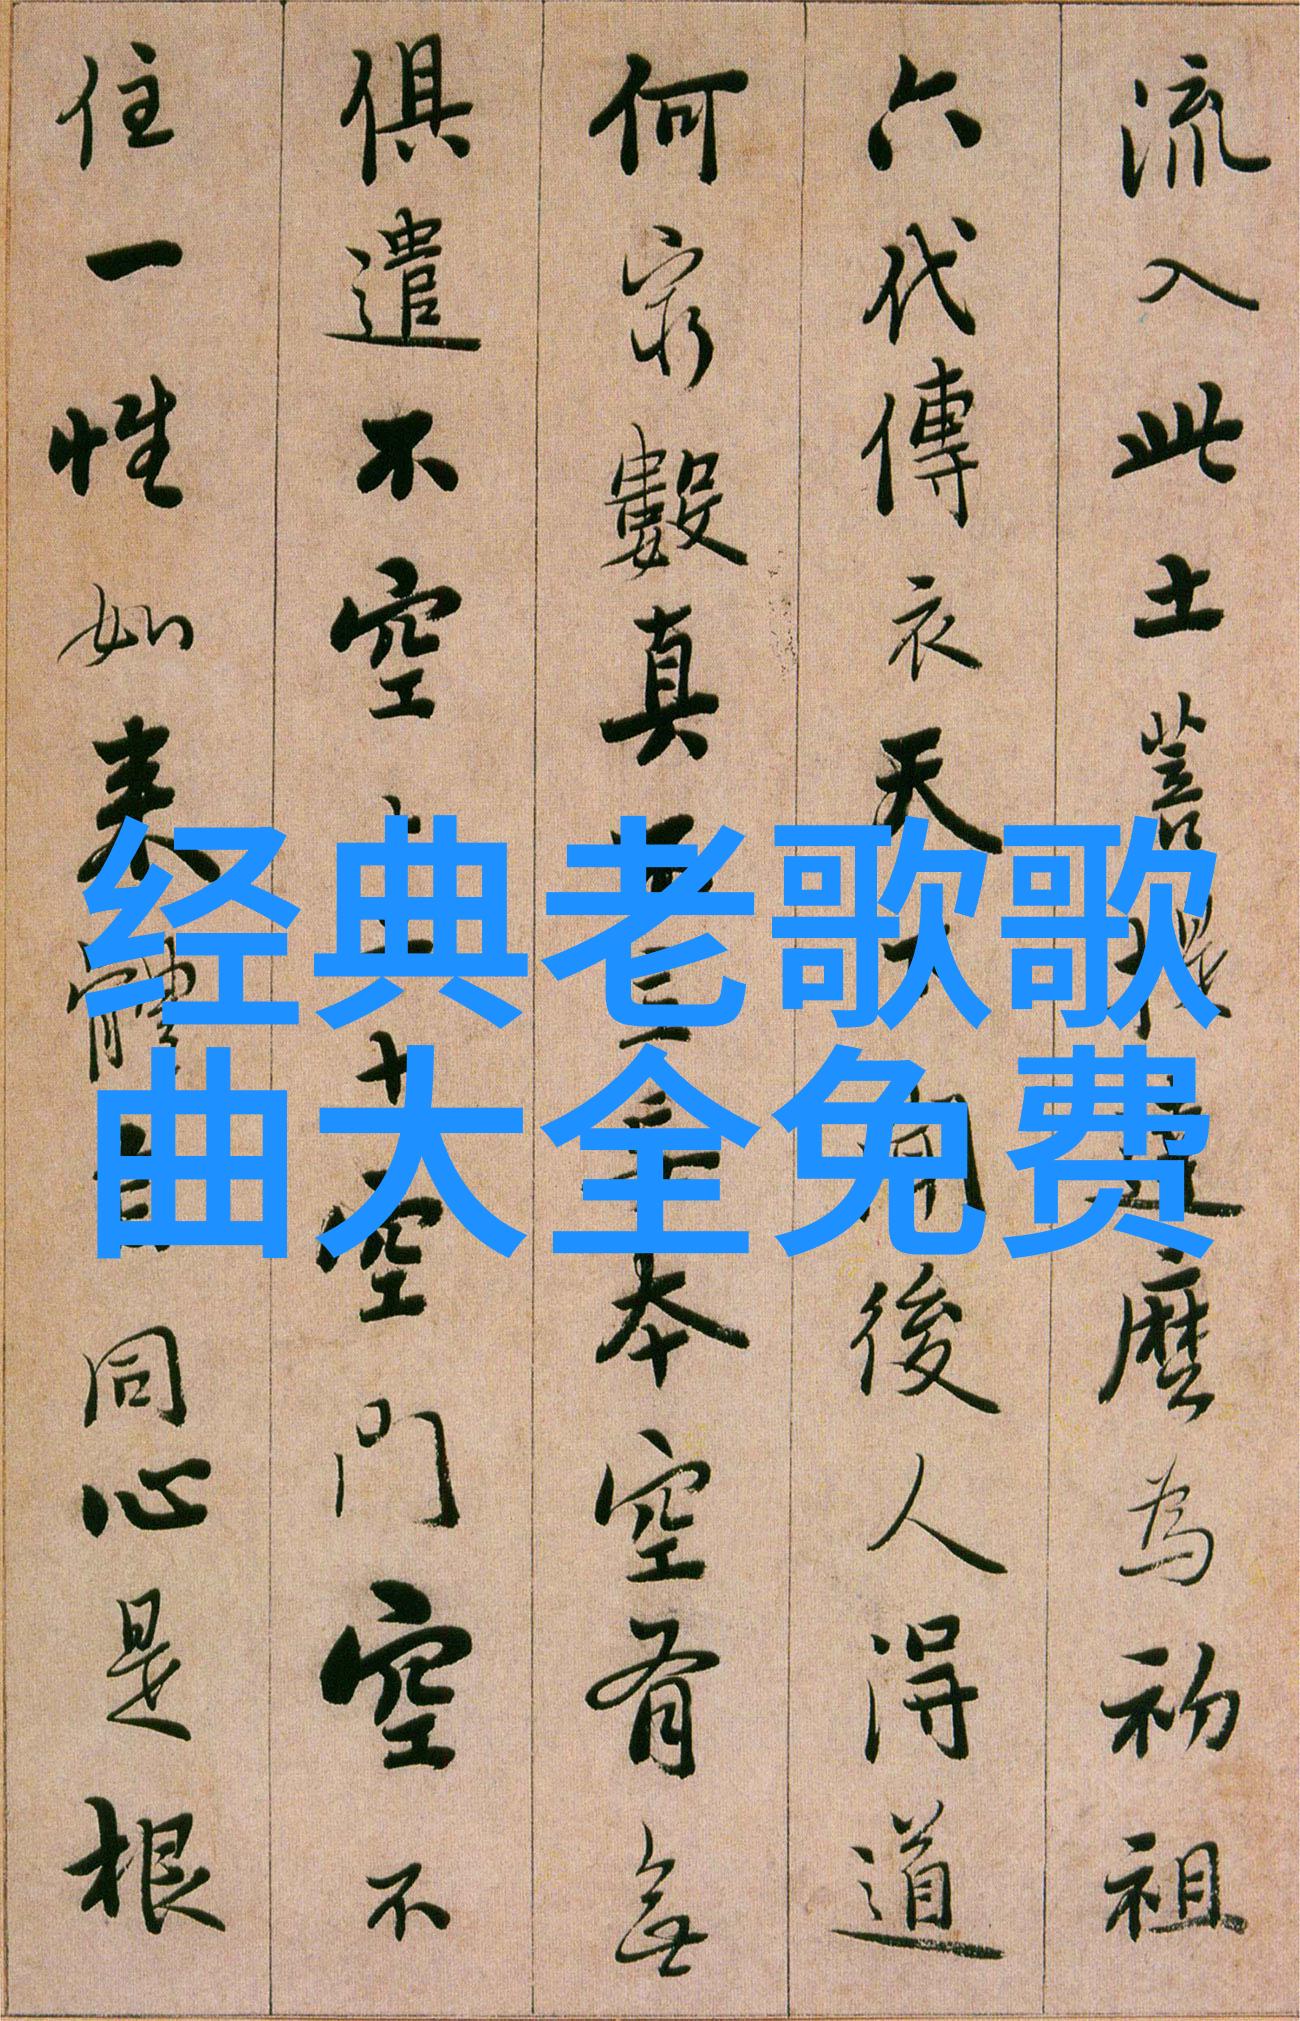 流入此土菩提達麼為初祖
六代傳衣天下聞後人得道
何窮數真本空有無
俱遣不空十空門空不
住一性如來體自同心是根
经典老歌歌
曲大全免费